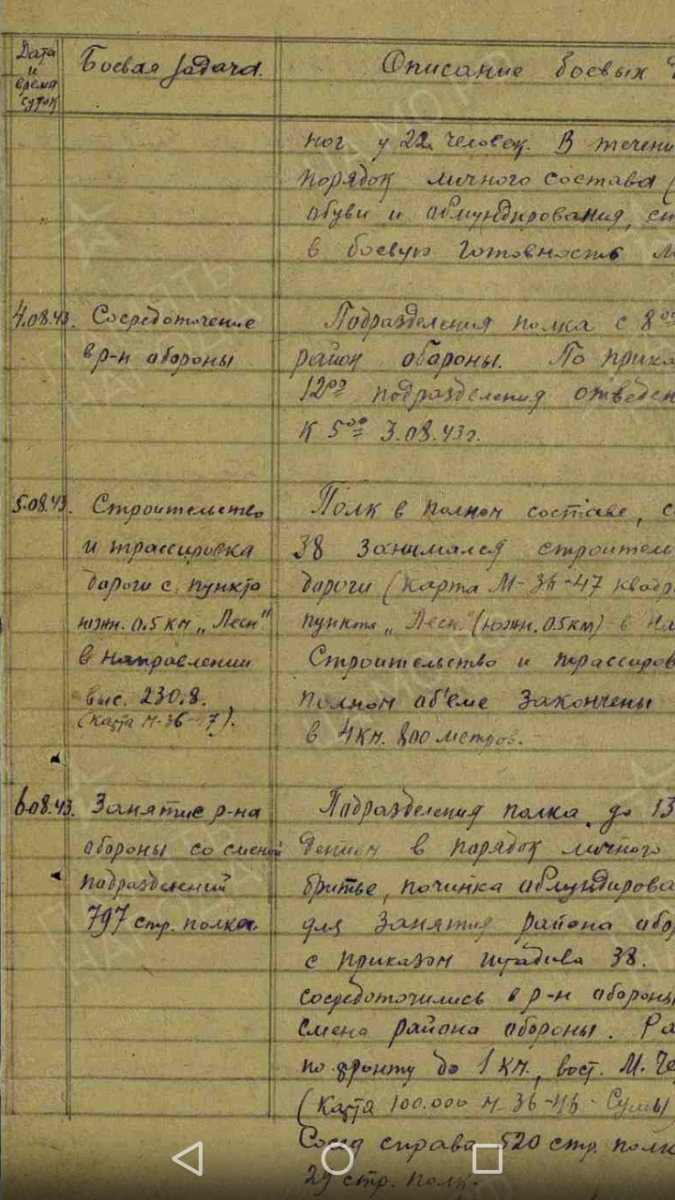 Дата
и
время
суток
Боевая задача.
Описание боевых
ног у 22 человек. В течени
порядок личного состава (
обуви и обмундирования,
в боевую готовность
4.08.43. Сосредоточение
в р-н обороны
Подразделения полка с 8⁰⁰
район обороны. По прика
12⁰⁰ подразделения отведен
к 5⁰⁰ 3.08.43г.
5.08.43. Строительство
и трассировка
дороги с пункта
южн. 0.5 км „Леси"
в направлении
выс. 230.8.
(Карта М-36-47).
Полк в полном составе,
38 занимался строитель
дороги (карта М-36-47 квадр
пункта „Леси" (южн. 0.5 км) в
Строительство и трассиров
полном об'еме закончены
в 4 км. 800 метров.-
6.08.43. Занятие р-на
обороны со сменой
подразделений
797 стр. полка.
Подразделения полка до 13
дением в порядок личного
бритье, починка обмундирова
для занятия района обо
с приказом штадива 38.
сосредоточились в р-н обороны
смена района обороны. Ра
по фронту до 1 км., вост. М. Че
(Карта 100.000 М-36-46-Сумы)
Сосед справа 520 стр. полк
29 стр. полк.